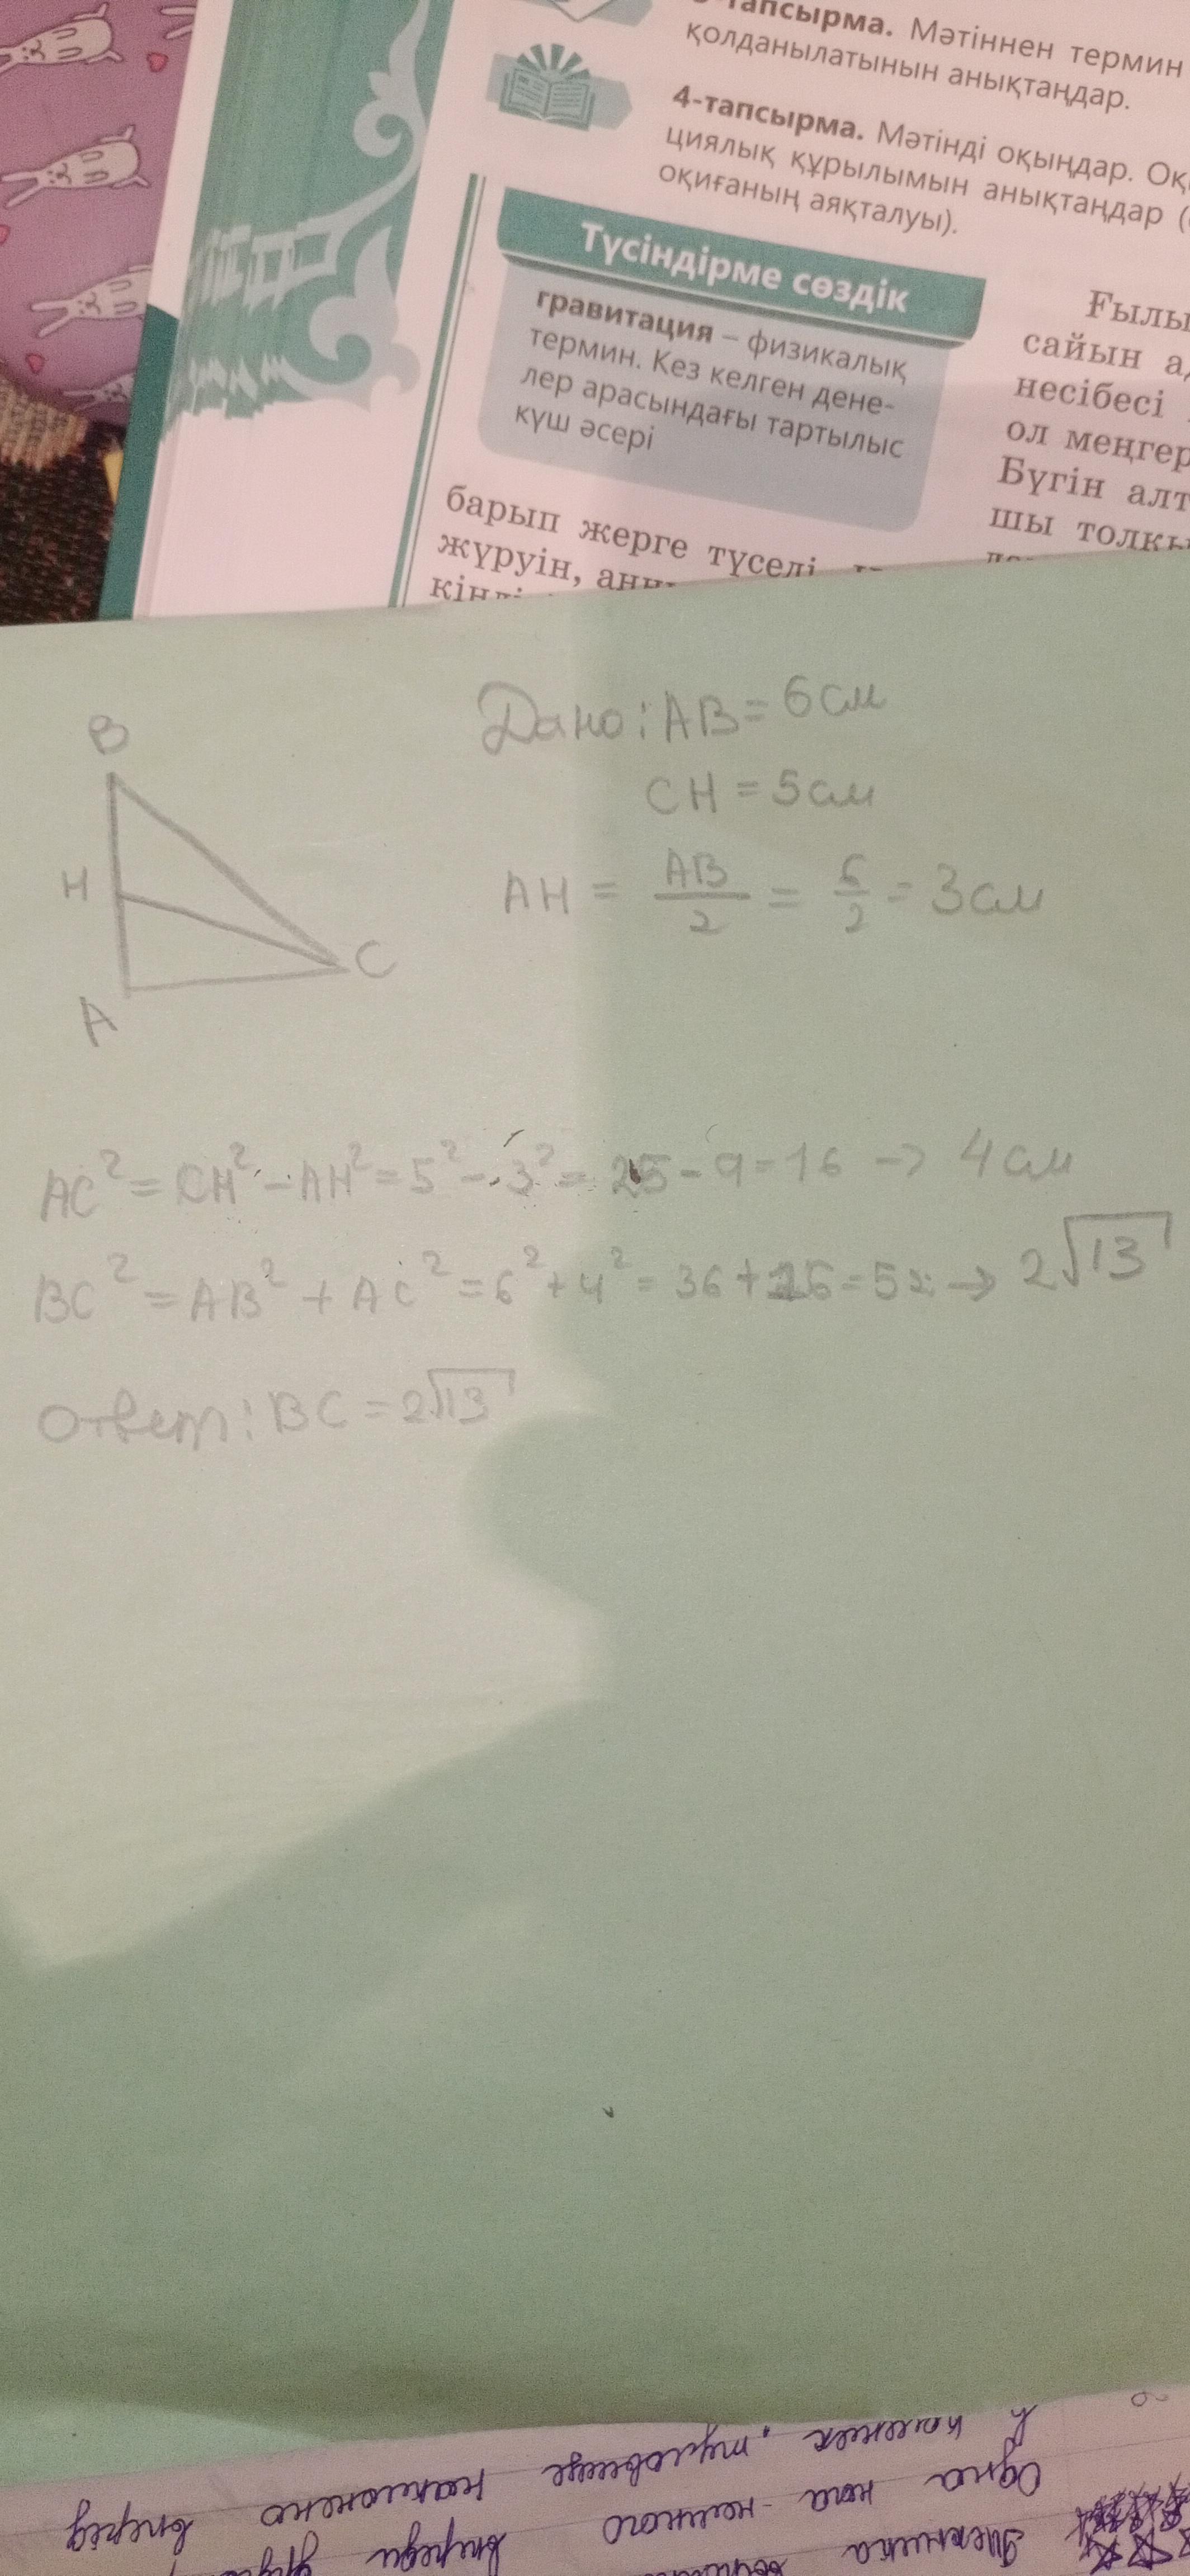 -тапсырма. Мәтіннен термин
қолданылатынын анықтаңдар.
4-тапсырма. Мәтінді оқыңдар.
циялық құрылымын анықтаңдар (
оқиғаның аяқталуы).
Түсіндірме сөздік
гравитация – физикалық
термин. Кез келген дене-
лер арасындағы тартылыс
күш әсері
Ғылы
сайын
несібесі
ол меңгер
Бүгін алт
шы толқы
барып жерге түседі
жүруін,
Дано: AB = 6 см
CH = 5 см
AH = AB/2 = 6/2 = 3 см
B
H
A
C
AC² = CH² - AH² = 5² - 3² = 25 - 9 = 16 → 4 см
BC² = AB² + AC² = 6² + 4² = 36 + 16 = 52 → 2√13
Ответ: BC = 2√13
вперёд наклонено туловище, коленях
вперёди немного нога Одна